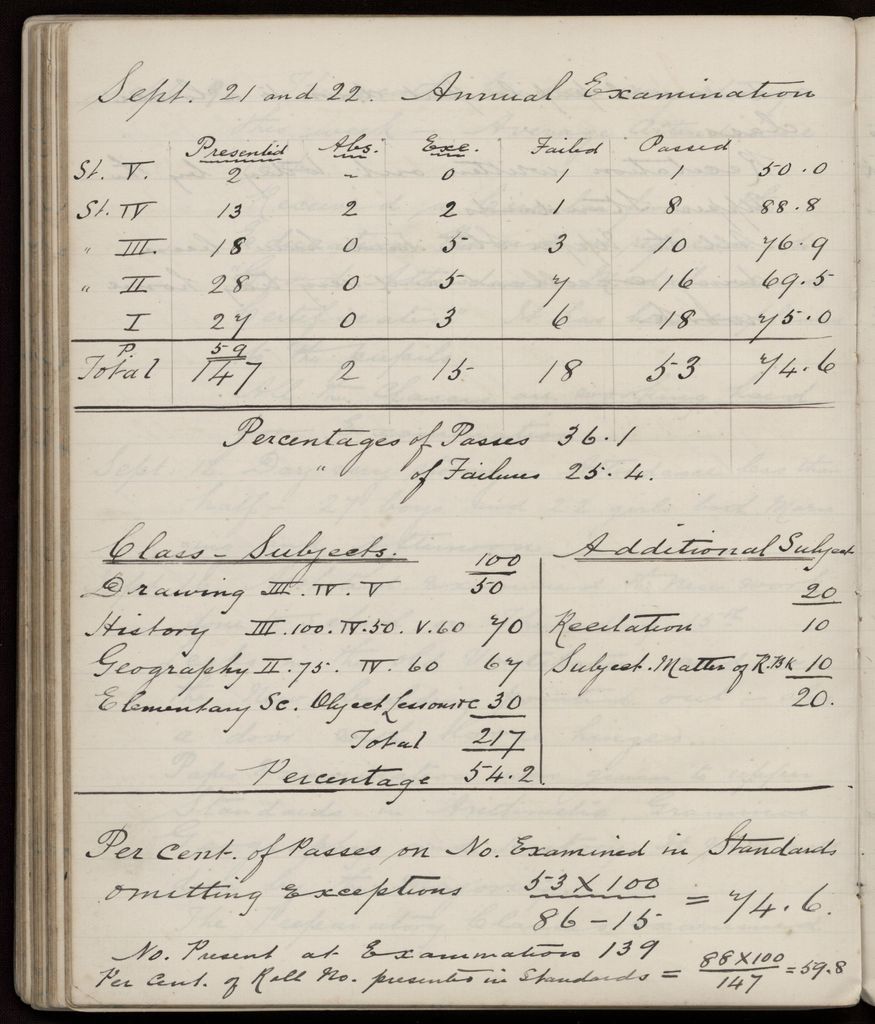 Sept. 21 and 22. Annual Examination
Presented Abs. Exe. Failed Passed
St. V. 2 - 0 1 1 50.0
St. IV 13 2 2 1 8 88.8
" III. 18 0 5 3 10 76.9
" II 28 0 5 7 16 69.5
I 27 0 3 6 18 75.0
P. 59
Total 147 2 15 18 53 74.6
Percentages of Passes 36.1
" of Failures 25.4.
Class-Subjects. 100
Drawing III. IV. V 50
History III.100. IV.50. V.60 70
Geography II.75. IV. 60 67
Elementary Sc. Object Lessons &c 30
Total 217
Percentage 54.2
Additional Subject
20
Recitation 10
Subject. Matter of R. Bk 10
20.
Per Cent. of Passes on No. Examined in Standards
omitting Exceptions 53 X 100 / 86 - 15 = 74.6.
No. Present at Examination 139
Per Cent. of Roll No. presented in Standards = 88 X 100 / 147 = 59.8